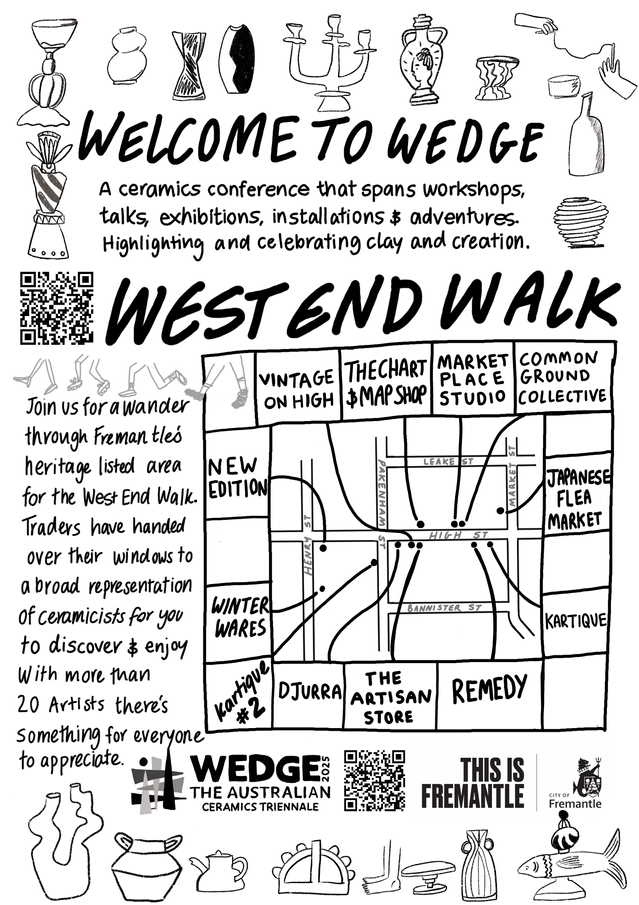 WELCOME TO WEDGE
A ceramics conference that spans workshops,
talks, exhibitions, installations $ adventures.
Highlighting and celebrating clay and creation.
WEST END WALK
Join us for a wander
through Fremantle's
heritage listed area
for the West End Walk.
Traders have handed
over their windows to
a broad representation
of ceramicists for you
to discover $ enjoy
With more than
20 Artists there's
something for everyone
to appreciate.
VINTAGE
ON HIGH
THE CHART
$ MAP SHOP
MARKET
PLACE
STUDIO
COMMON
GROUND
COLLECTIVE
NEW
EDITION
JAPANESE
FLEA
MARKET
LEAKE ST
PAKENHAM ST
MARKET ST
HENRY ST
HIGH ST
BANNISTER ST
WINTER
WARES
KARTIQUE
Kartique
#2
DJURRA
THE
ARTISAN
STORE
REMEDY
WEDGE 2025
THE AUSTRALIAN
CERAMICS TRIENNALE
THIS IS
FREMANTLE
CITY OF
Fremantle